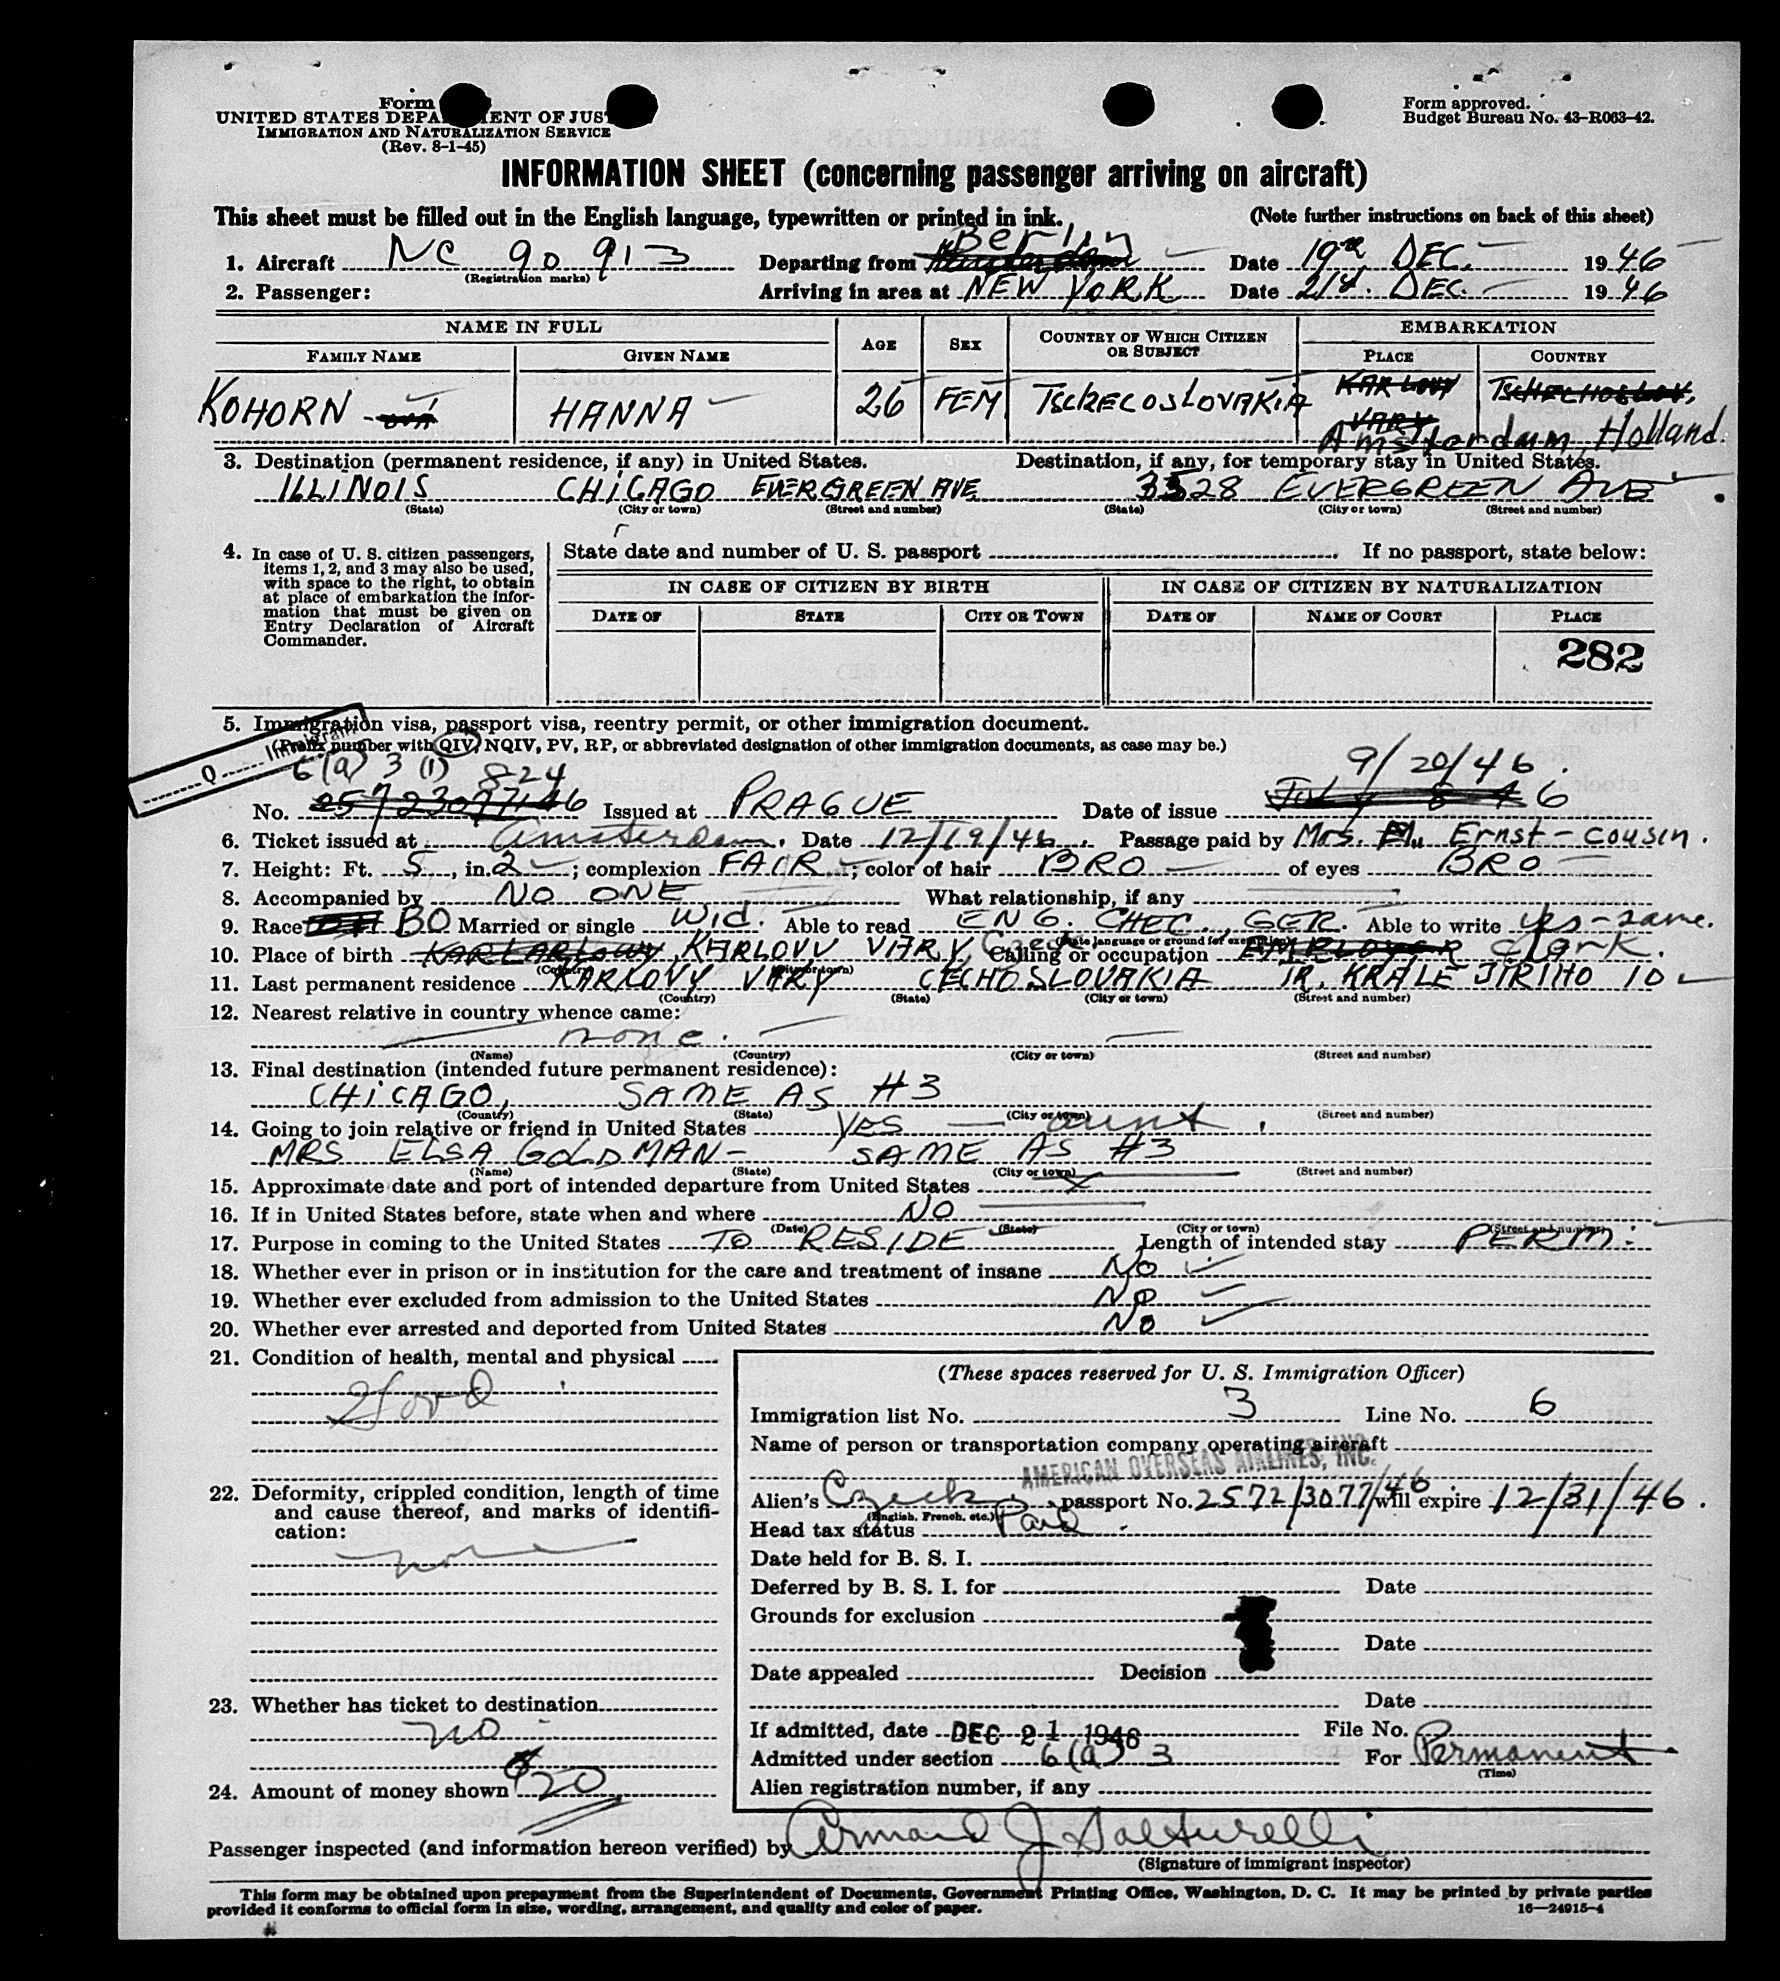 Form
UNITED STATES DEPA MENT OF JUS
IMMIGRATION AND NATURALIZATION SERVICE
(Rev. 8-1-45)
Form approved.
Budget Bureau No. 43-R063-42.
INFORMATION SHEET (concerning passenger arriving on aircraft)
This sheet must be filled out in the English language, typewritten or printed in ink. (Note further instructions on back of this sheet)
1. Aircraft NC 90 913 Departing from Berlin Date 19th DEC. 1946
(Registration marks)
2. Passenger: Arriving in area at NEW YORK Date 21st. DEC. 1946
NAME IN FULL AGE SEX COUNTRY OF WHICH CITIZEN OR SUBJECT EMBARKATION
FAMILY NAME GIVEN NAME PLACE COUNTRY
KOHORN -OVA HANNA 26 FEM TSCHECOSLOVAKIA KARLOVY VARY TSCHECHOSLOV,
Amsterdam, Holland.
3. Destination (permanent residence, if any) in United States. Destination, if any, for temporary stay in United States.
ILLINOIS CHICAGO EVERGREEN AVE 3528 EVERGREEN AVE
(State) (City or town) (Street and number) (State) (City or town) (Street and number)
4. In case of U. S. citizen passengers, items 1, 2, and 3 may also be used, with space to the right, to obtain at place of embarkation the information that must be given on Entry Declaration of Aircraft Commander.
State date and number of U. S. passport If no passport, state below:
IN CASE OF CITIZEN BY BIRTH IN CASE OF CITIZEN BY NATURALIZATION
DATE OF STATE CITY OR TOWN DATE OF NAME OF COURT PLACE
282
5. Immigration visa, passport visa, reentry permit, or other immigration document.
(Prefix number with QIV, NQIV, PV, RP, or abbreviated designation of other immigration documents, as case may be.)
Q Immigrant
6(a) 3 (1) 824 9/20/46.
No. 2572307746 Issued at PRAGUE Date of issue July 8 46
6. Ticket issued at Amsterdam. Date 12/19/46. Passage paid by Mrs. M. Ernst - cousin.
7. Height: Ft. 5, in. 2; complexion FAIR; color of hair BRO of eyes BRO
8. Accompanied by NO ONE What relationship, if any
9. Race BO Married or single Wid. Able to read ENG. CHEC., GER. Able to write yes-same.
(State language or ground for exemption)
10. Place of birth KARLOVY VARY, Czech Calling or occupation EMPLOYER Clerk.
(Country) (City or town)
11. Last permanent residence KARLOVY VARY CECHOSLOVAKIA TR. KRALE JIRIHO 10
(Country) (State) (City or town) (Street and number)
12. Nearest relative in country whence came:
none.
(Name) (Country) (City or town) (Street and number)
13. Final destination (intended future permanent residence):
CHICAGO, SAME AS #3
(Country) (State) (City or town) (Street and number)
14. Going to join relative or friend in United States YES - aunt.
MRS ELSA GOLDMAN- SAME AS #3
(Name) (State) (City or town) (Street and number)
15. Approximate date and port of intended departure from United States X
16. If in United States before, state when and where NO
(Date) (State) (City or town) (Street and number)
17. Purpose in coming to the United States TO RESIDE Length of intended stay PERM.
18. Whether ever in prison or in institution for the care and treatment of insane NO
19. Whether ever excluded from admission to the United States NO
20. Whether ever arrested and deported from United States NO
21. Condition of health, mental and physical
Good
22. Deformity, crippled condition, length of time and cause thereof, and marks of identification:
none
23. Whether has ticket to destination
no
24. Amount of money shown $20
(These spaces reserved for U. S. Immigration Officer)
Immigration list No. 3 Line No. 6
Name of person or transportation company operating aircraft
AMERICAN OVERSEAS AIRLINES, INC.
Alien's Czech passport No. 2572/3077/46 will expire 12/31/46.
(English, French, etc.)
Head tax status Paid
Date held for B. S. I.
Deferred by B. S. I. for Date
Grounds for exclusion
Date
Date appealed Decision
Date
If admitted, date DEC 21 1946 File No.
Admitted under section 6(a) 3 For Permanent
(Time)
Alien registration number, if any
Passenger inspected (and information hereon verified) by Armand J Salturelli
(Signature of immigrant inspector)
This form may be obtained upon prepayment from the Superintendent of Documents, Government Printing Office, Washington, D. C. It may be printed by private parties
provided it conforms to official form in size, wording, arrangement, and quality and color of paper. 16—24915-4